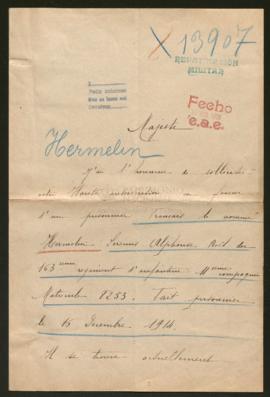 X 13907
REPATRIACIÓN
MILITAR
Fecho
e.a.e.
Majesté
Hermelin
J'ai l'honneur de solliciter
votre Haute intervention en faveur
d'un prisonnier Français le nommé
Hermelin Alphonse du
163ème régiment d'infanterie 11ème compagnie
Matricule 8253. Fait prisonnier
le 15 Décembre 1914.
Il se trouve actuellement